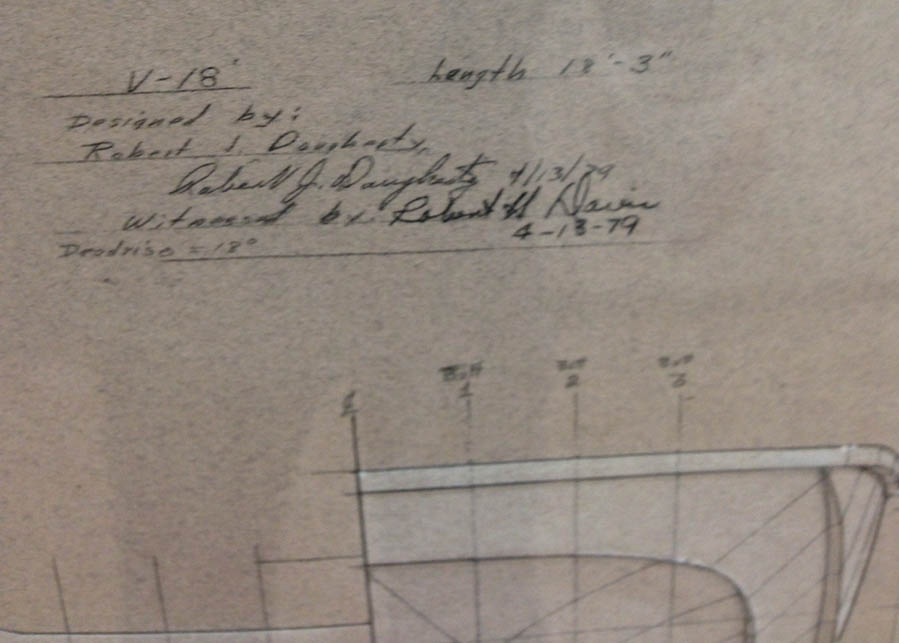 V-18' Length 18'-3"
Designed by:
Robert J. Daugherty,
Robert J. Daugherty 4/13/79
Witnessed by: Robert H Davis
4-13-79
Deadrise = 18°
℄ Butt Butt Butt
1 2 3